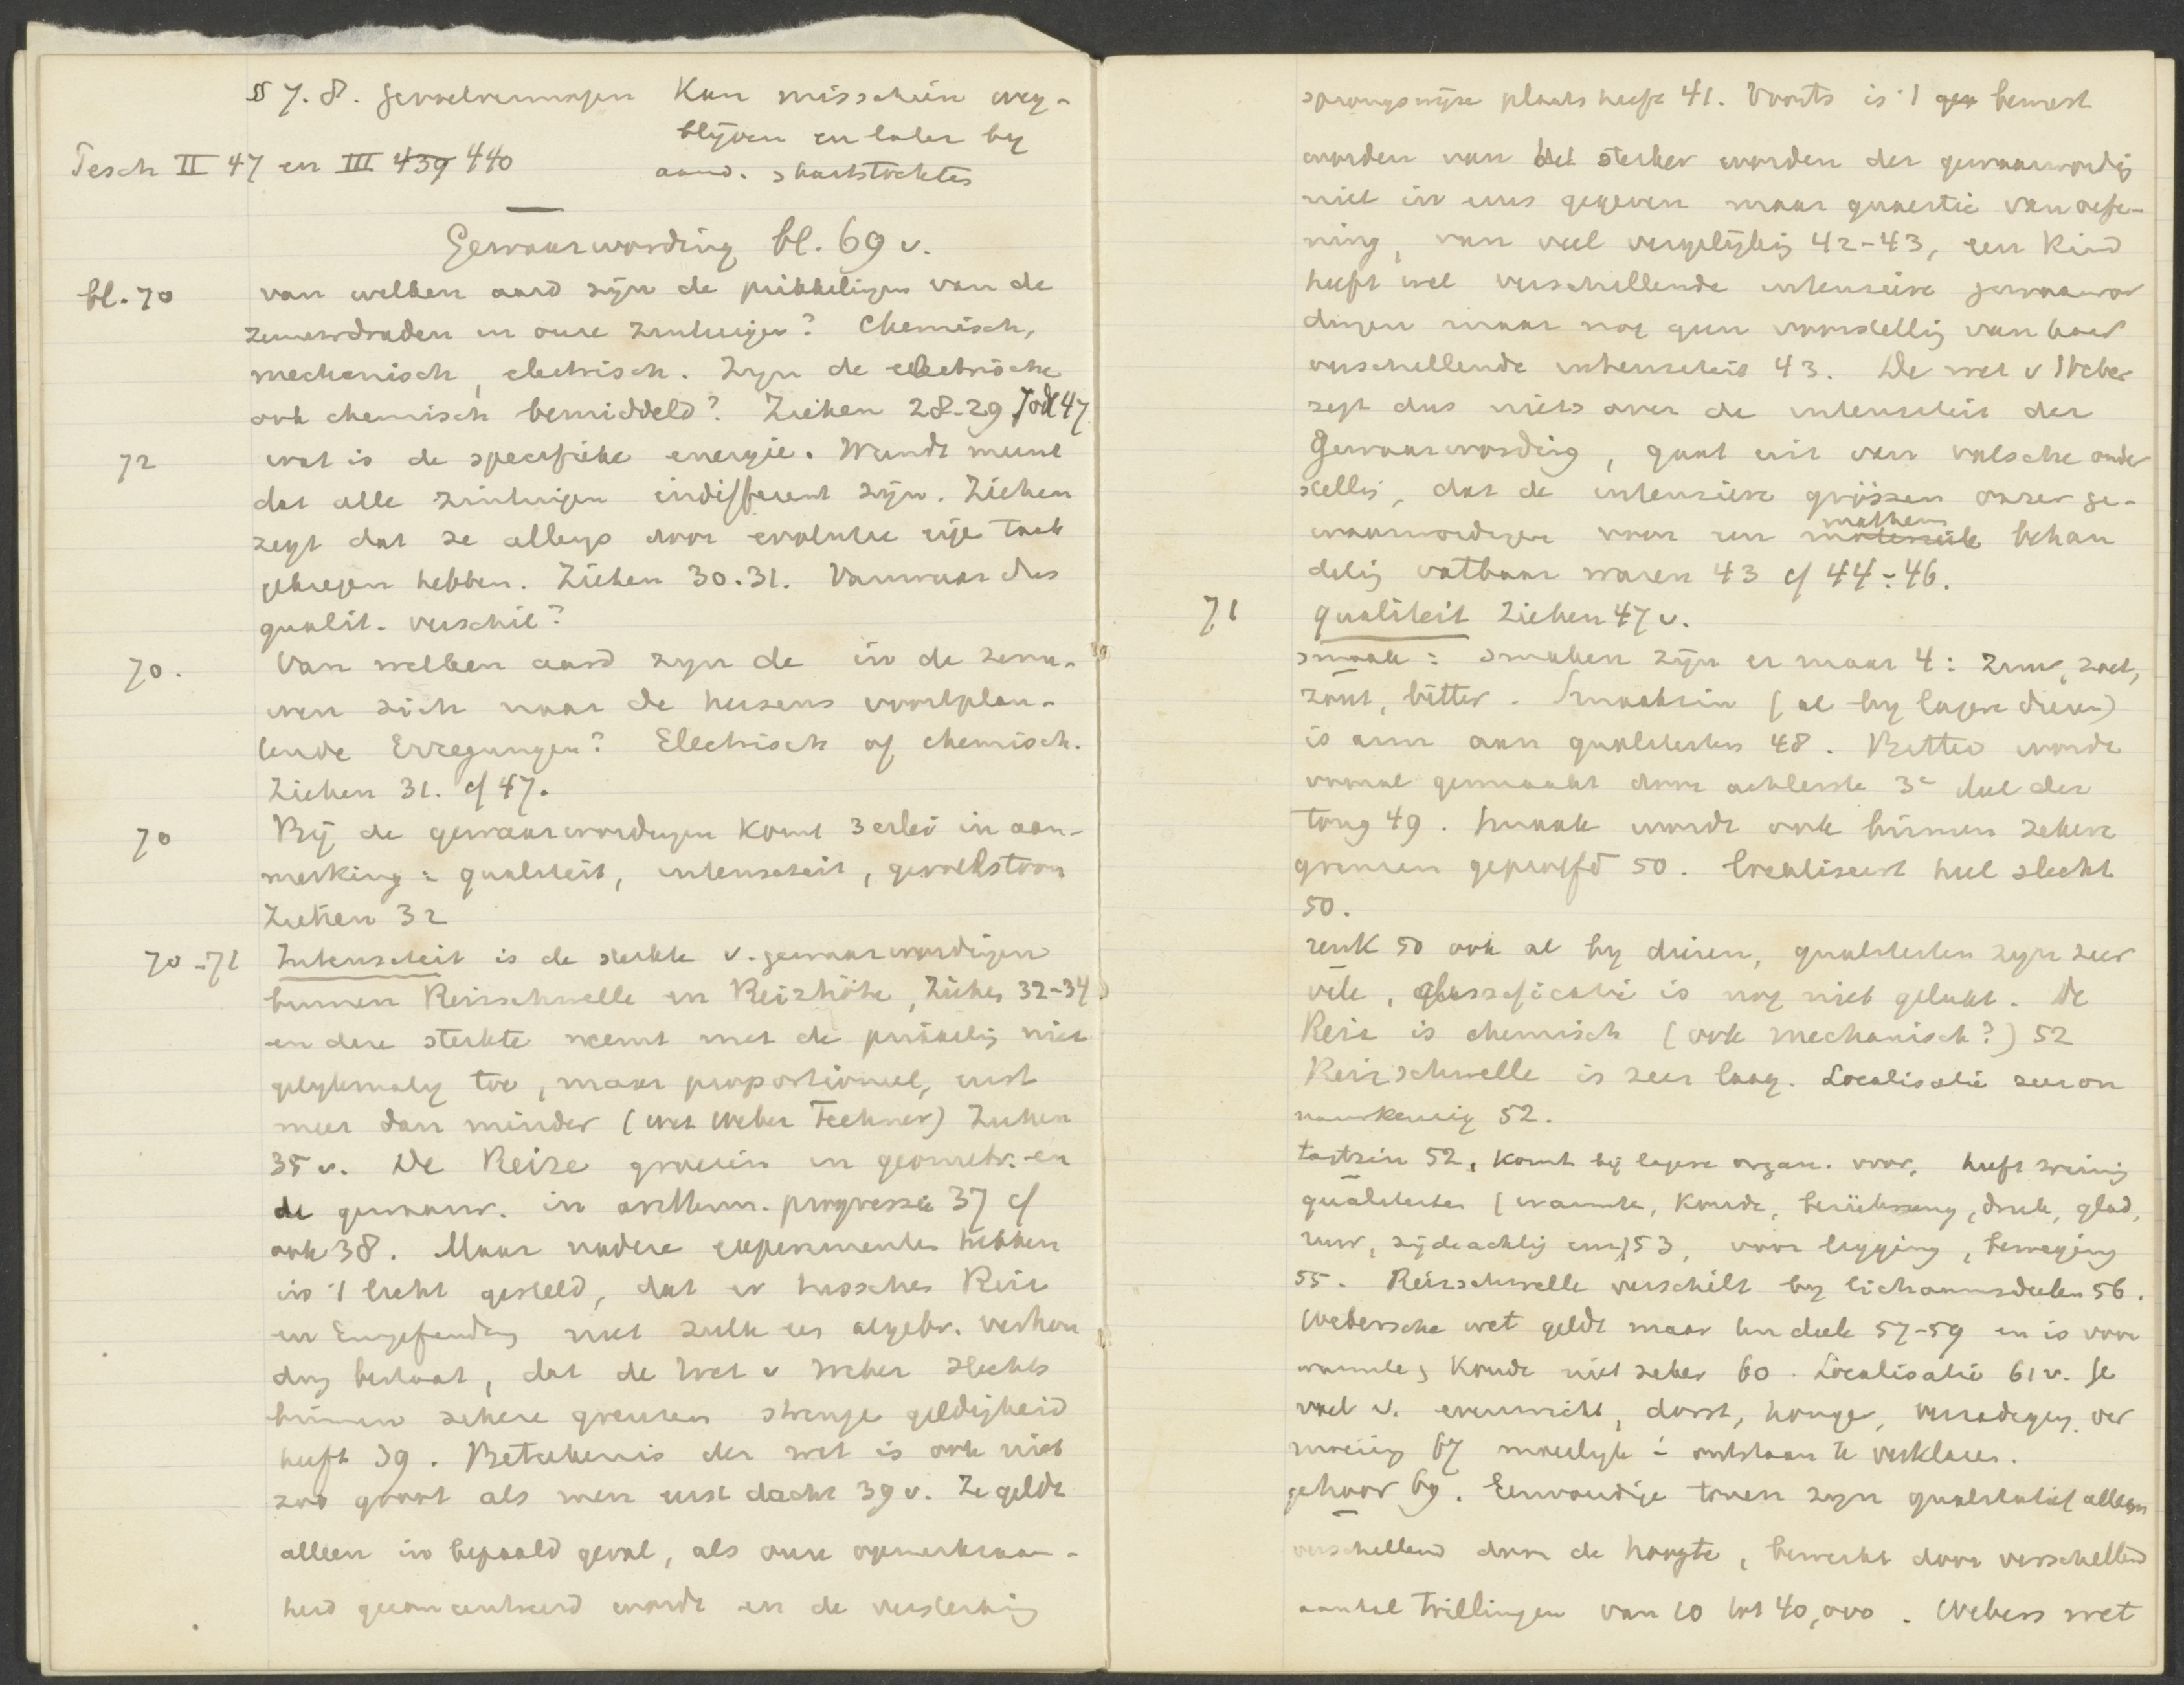 § 7. 8. gevoelvermogen Kan misschien weg-
blijven en later by
aand. hartstochten
Tesch II 47 en III 439 440
Gewaarwording bl. 69 v.
bl. 70 van welken aard zijn de prikkelingen van de
zenuwdraden in onze zintuigen? Chemisch,
mechanisch, electrisch. Zyn de electrische
ook chemisch bemiddeld? Ziehen 28-29 Jodl 47
72 wat is de specifieke energie. Wundt meent
dat alle zintuigen indifferent zijn. Ziehen
zegt dat ze allengs door evolutie eige taak
gekregen hebben. Ziehen 30.31. Vanwaar dus
qualit. verschil?
70. Van welken aard zyn de in de zenu-
wen zich naar de hersens voortplan-
tende Erregungen? Electrisch of chemisch.
Ziehen 31. cf 47.
70 Bij de gewaarwordingen komt 3erlei in aan-
merking: qualiteit, intensiteit, gevoelstoon
Ziehen 32
70-71 Intensiteit is de sterkte v. gewaarwordingen
binnen Reizschwelle en Reizhöhe, Ziehen 32-34
en deze sterkte neemt met de prikkeling niet
gelykmatig toe, maar proportioneel, eerst
meer dan minder (wet Weber Fechner) Ziehen
35 v. De Reize groeien in geometr. en
de gewaarw. in arithm. progressie 37 cf
ook 38. Maar nadere experimenten hebben
in 't licht gesteld, dat er tusschen Reiz
en Empfindung niet zulk een algebr. verhou
ding bestaat, dat de wet v Weber slechts
binnen zekere grenzen strenge geldigheid
heeft 39. Beteekenis der wet is ook niet
zoo groot als men eerst dacht 39 v. Ze geldt
alleen in bepaald geval, als onze opmerkzaam-
heid geconcentreerd wordt en de versterking
sprongswijze plaats heeft 41. Voorts is 't bewust
worden van het sterker worden der gewaarwordig
niet in eens gegeven maar quaestie van oefe-
ning, van veel vergelijkig 42-43, een kind
heeft wel verschillende intensieve gewaarwor
dingen maar nog geen voorstellig van haar
verschillende intensiteit 43. De wet v Weber
zegt dus niets over de intensiteit der
gewaarwording, gaat uit van valsche onder
stellig, dat de intensieve grössen onzer ge-
waarwordingen voor een mathem behan
delig vatbaar waren 43 cf 44-46.
71 qualiteit Ziehen 47 v.
smaak: smaken zijn er maar 4: zuur, zoet,
zout, bitter. Smaakzin (al by lagere dieren)
is arm aan qualiteiten 48. Bitter wordt
vooral gesmaakt door achterste 3e deel der
tong 49. smaak wordt ook binnen zekere
grenzen geproefd 50. localiseert heel slecht
50.
reuk 50 ook al by dieren, qualiteiten zyn zeer
vele, classificatie is nog niet gelukt. De
Reiz is chemisch (ook mechanisch?) 52
Reizschwelle is zeer laag. Localisatie zeer on
nauwkeurig 52.
tastzin 52, komt bij lagere organ. voor, heeft weinig
qualiteiten (warmte, koude, berührung, druk, glad,
ruw, zijdeachtig enz) 53, voor ligging, beweging
55. Reizschwelle verschilt by lichaamsdeelen 56.
Webersche wet geldt maar ten deele 57-59 en is voor
warmte, koude niet zeker 60. Localisatie 61 v. Ge
voel v. evenwicht, dorst, honger, verzadiging, ver
moeiig 67 moeilyk in ontstaan te verklaren.
gehoor 69. Eenvoudige tonen zyn qualitatief alleen
verschillend door de hoogte, bewerkt door verschillend
aantal trillingen van 10 tot 40,000. Webers wet